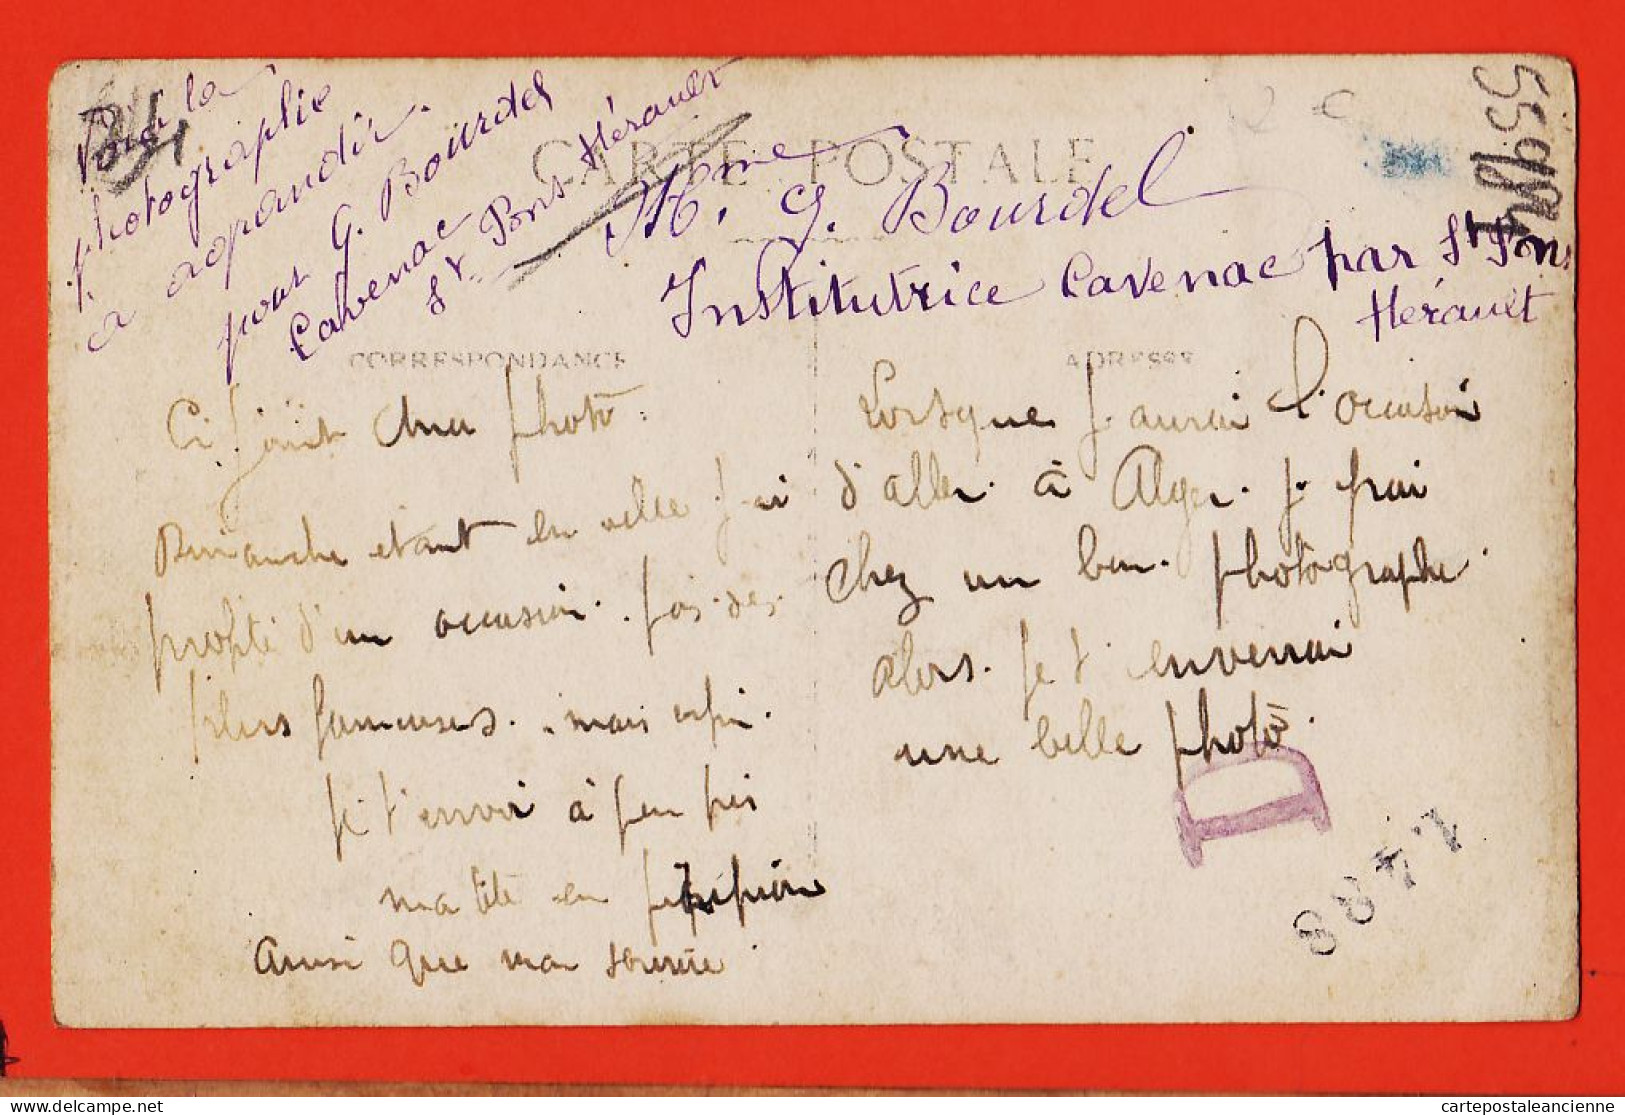 Voici la
photographie
à agrandir.
pour G. Bourdel
Cavenac
St Pons Hérault
CARTE POSTALE
Mme G. Bourdel
Institutrice Cavenac par St Pons
Hérault
CORRESPONDANCE
Ci joint ma photo.
Dimanche etant en ville j'ai
profité d'un occasion. pas des
plus fameuses. mais enfin.
je t'envoi à peu près
ma tête en
Ainsi que mon
ADRESSE
Lorsque j'aurai l'occasion
d'aller à Alger. je
chez un bon photographe.
alors. je t'enverrai
une belle photo.
D
1.488
cartepostaleancienne.com